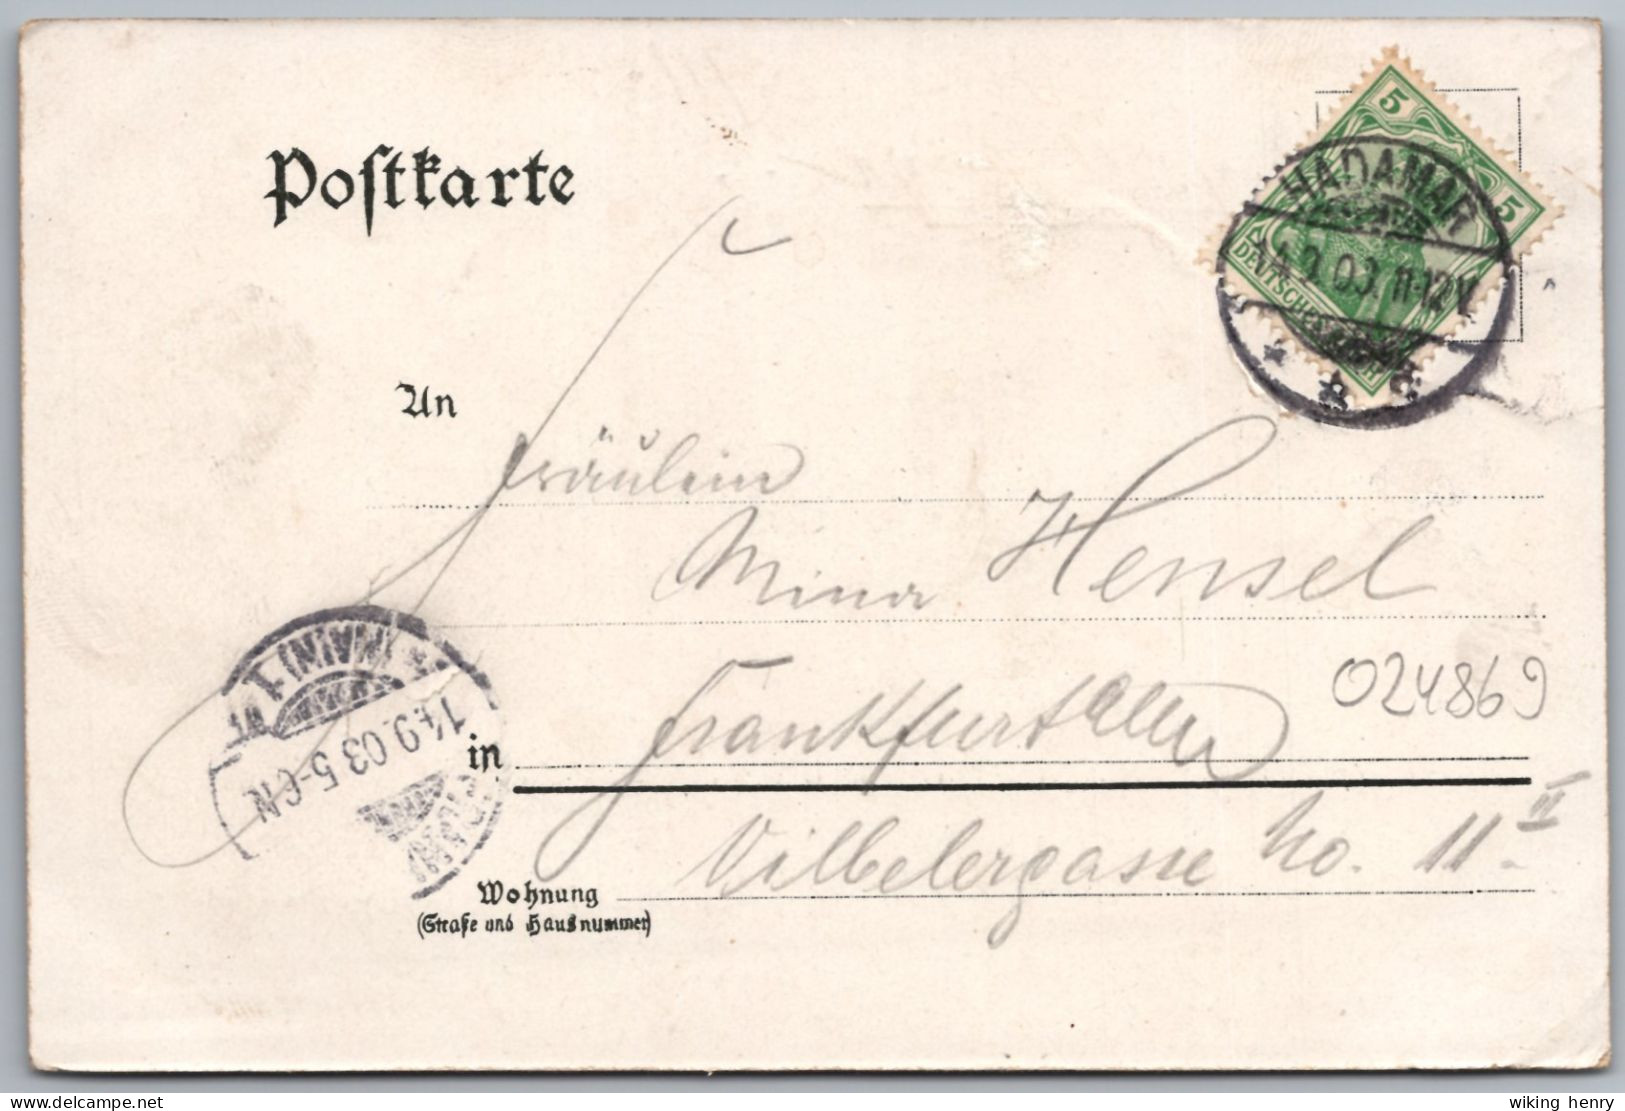 Postkarte
5 5
DEUTSCHES REICH
HADAMAR
14.9.03. 11-12V.
An
Fräulein
Mina Hensel
024869
in Frankfurt a/M
Vilbelergasse No. 11 II
(MAIN) 1
14.9.03 5-6N
Wohnung
(Straße und Hausnummer)
delcampe.net
wiking henry